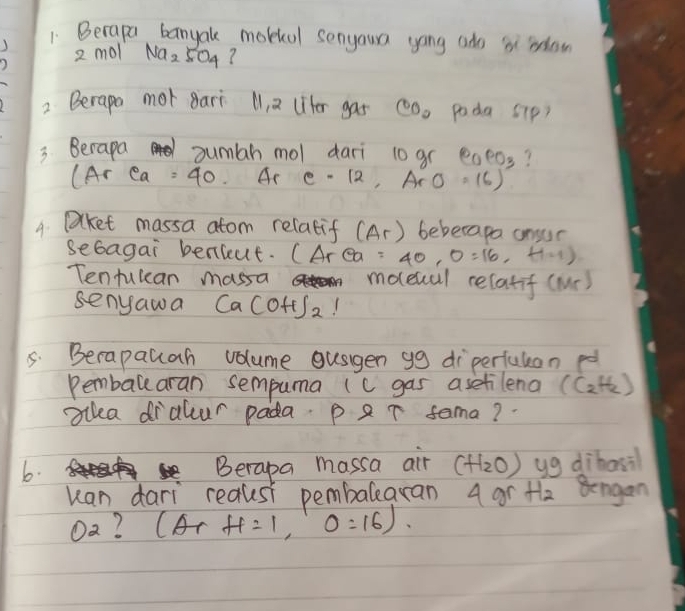 1. Berapa banyak molekul senyawa yang ada di dalam
2 mol Na2SO4?
2. Berapa mol dari 11,2 liter gas CO2 pada STP?
3. Berapa jumlah mol dari 10 gr CaCO3?
(Ar Ca = 40. Ar C = 12, Ar O = 16)
4. Diket massa atom relatif (Ar) beberapa unsur
sebagai berikut. (Ar Ca = 40, O = 16, H=1).
Tentukan massa molekul relatif (Mr)
senyawa Ca(OH)2!
5. Berapakah volume oksigen yg diperlukan pd
pembakaran sempurna 1 L gas asetilena (C2H2)
jika diukur pada P & T sama?
6. Berapa massa air (H2O) yg dihasil
kan dari reaksi pembakaran 4 gr H2 dengan
O2? (Ar H = 1, O = 16).